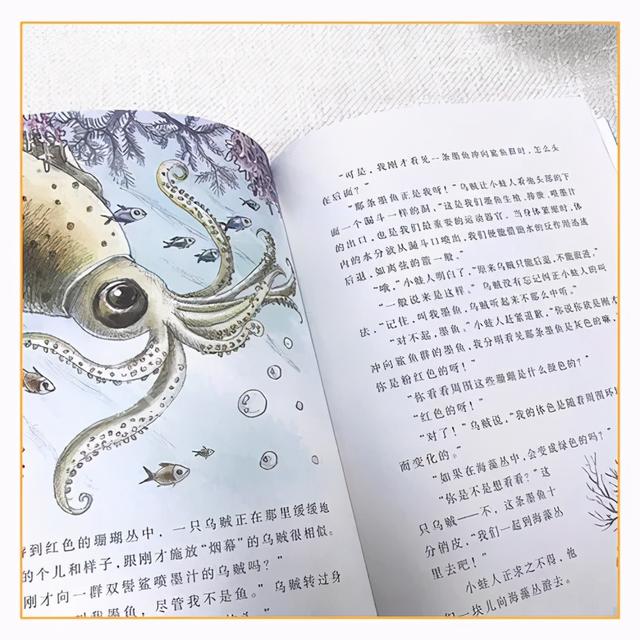 到红色的珊瑚丛中，一只乌贼正在那里缓缓地
的个儿和样子，跟刚才施放“烟幕”的乌贼很相似。
刚才向一群双髻鲨喷墨汁的乌贼吗？”
叫我墨鱼，尽管我不是鱼。”乌贼转过身
“可是，我刚才看见一条墨鱼冲向鲨鱼群时，怎么头
在后面？”
“那条墨鱼正是我呀！”乌贼让小蛙人看他头部的下
面一个漏斗一样的洞，“这是我们墨鱼生殖、排泄、喷墨汁
的出口，也是我们最重要的运动器官。当身体紧缩时，体
内的水分就从漏斗口喷出，我们便能借助水的反作用迅速
后退，如离弦的箭一般。”
“哦，”小蛙人明白了，“原来乌贼只能后退，不能前进。”
“一般说来是这样。”乌贼没有忘记纠正小蛙人的叫
法，“记住，叫我墨鱼，乌贼听起来不那么中听。”
“对不起，墨鱼。”小蛙人赶紧道歉，“你说你就是刚才
冲向鲨鱼群的墨鱼，我分明看见那条墨鱼是灰色的嘛，
你是粉红色的呀！”
“你看看周围这些珊瑚是什么颜色的？”
“红色的呀！”
“对了！”乌贼说，“我的体色是随着周围环
而变化的。”
“如果在海藻丛中，会变成绿色的吗？”
“你是不是想看看？”这
只乌贼——不，这条墨鱼十
分俏皮，“我们一起到海藻丛
里去吧！”
小蛙人正求之不得，他
们一块儿向海藻丛游去。